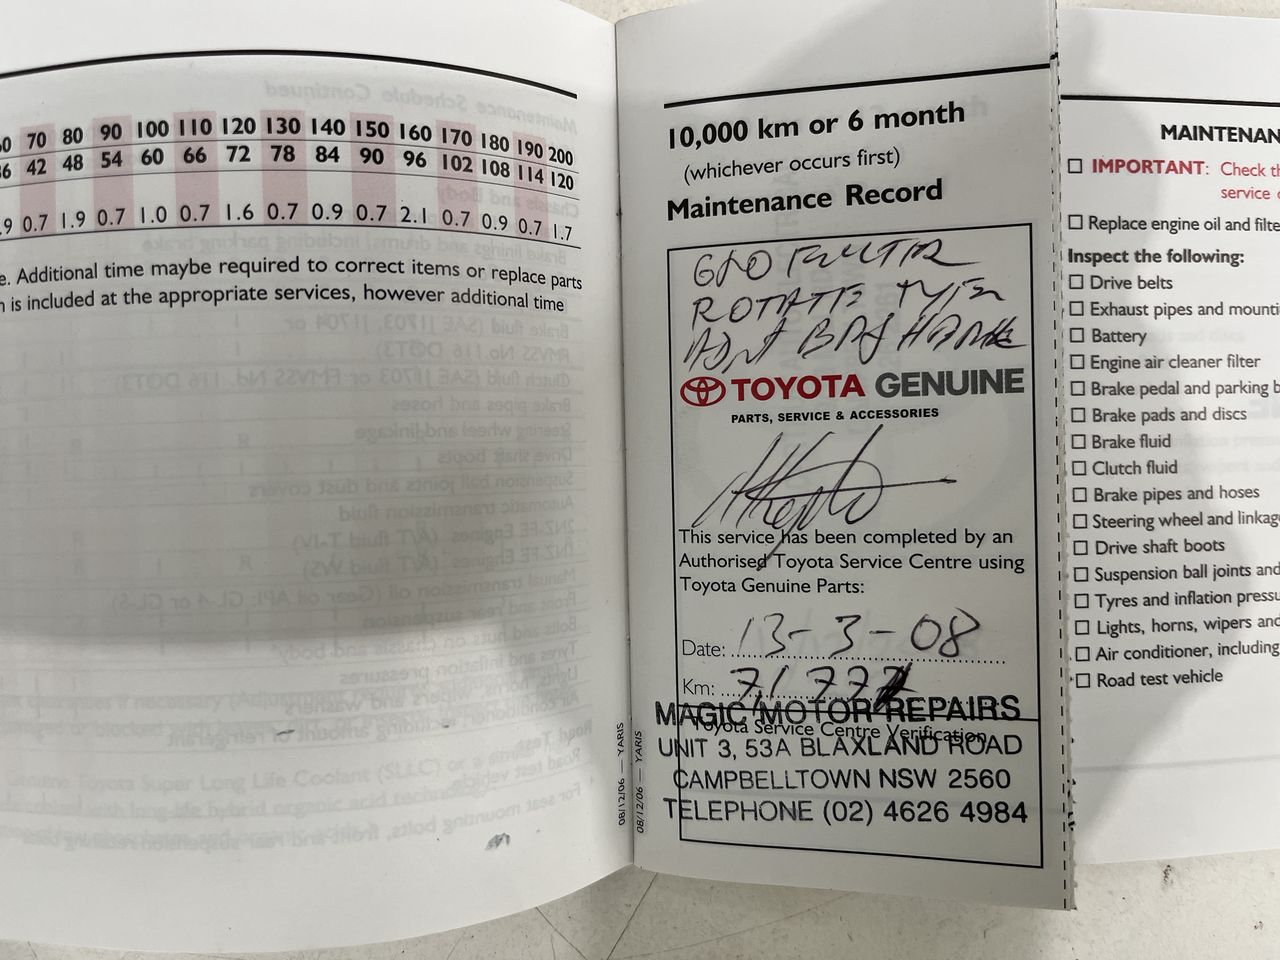 70 80 90 100 110 120 130 140 150 160 170 180 190 200
42 48 54 60 66 72 78 84 90 96 102 108 114 120
0.7 1.9 0.7 1.0 0.7 1.6 0.7 0.9 0.7 2.1 0.7 0.9 0.7 1.7
e. Additional time maybe required to correct items or replace parts
n is included at the appropriate services, however additional time
08/12/06 — YARIS
08/12/06 — YARIS
10,000 km or 6 month
(whichever occurs first)
Maintenance Record
ROTATE
TOYOTA GENUINE
PARTS, SERVICE & ACCESSORIES
This service has been completed by an
Authorised Toyota Service Centre using
Toyota Genuine Parts:
Date: 13-3-08
Km:
Toyota Service Centre Verification
MAGIC MOTOR REPAIRS
UNIT 3, 53A BLAXLAND ROAD
CAMPBELLTOWN NSW 2560
TELEPHONE (02) 4626 4984
MAINTENAN
IMPORTANT: Check th
service
Replace engine oil and filte
Inspect the following:
Drive belts
Exhaust pipes and mounti
Battery
Engine air cleaner filter
Brake pedal and parking b
Brake pads and discs
Brake fluid
Clutch fluid
Brake pipes and hoses
Steering wheel and linkag
Drive shaft boots
Suspension ball joints and
Tyres and inflation pressu
Lights, horns, wipers and
Air conditioner, including
Road test vehicle